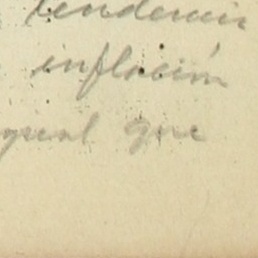 tendencia
inflación
igual que